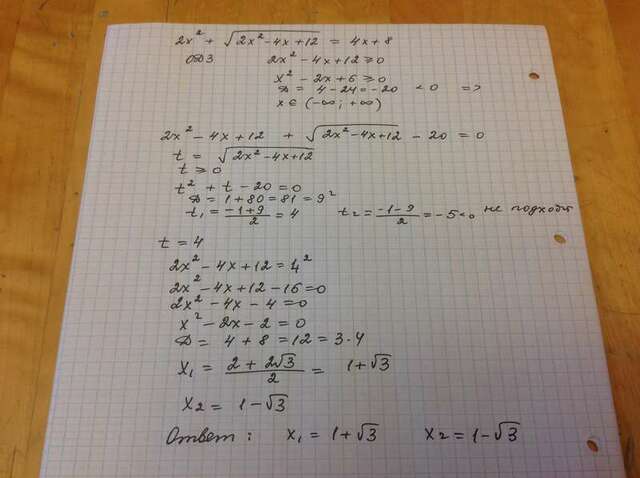 2x² + √(2x² - 4x + 12) = 4x + 8
ОДЗ 2x² - 4x + 12 ⩾ 0
x² - 2x + 6 ⩾ 0
D = 4 - 24 = -20 < 0 =>
x ∈ (-∞; +∞)
2x² - 4x + 12 + √(2x² - 4x + 12) - 20 = 0
t = √(2x² - 4x + 12)
t ⩾ 0
t² + t - 20 = 0
D = 1 + 80 = 81 = 9²
t₁ = (-1+9)/2 = 4 t₂ = (-1-9)/2 = -5 < 0 не подходит
t = 4
2x² - 4x + 12 = 4²
2x² - 4x + 12 - 16 = 0
2x² - 4x - 4 = 0
x² - 2x - 2 = 0
D = 4 + 8 = 12 = 3·4
x₁ = (2 + 2√3)/2 = 1 + √3
x₂ = 1 - √3
Ответ: x₁ = 1 + √3 x₂ = 1 - √3